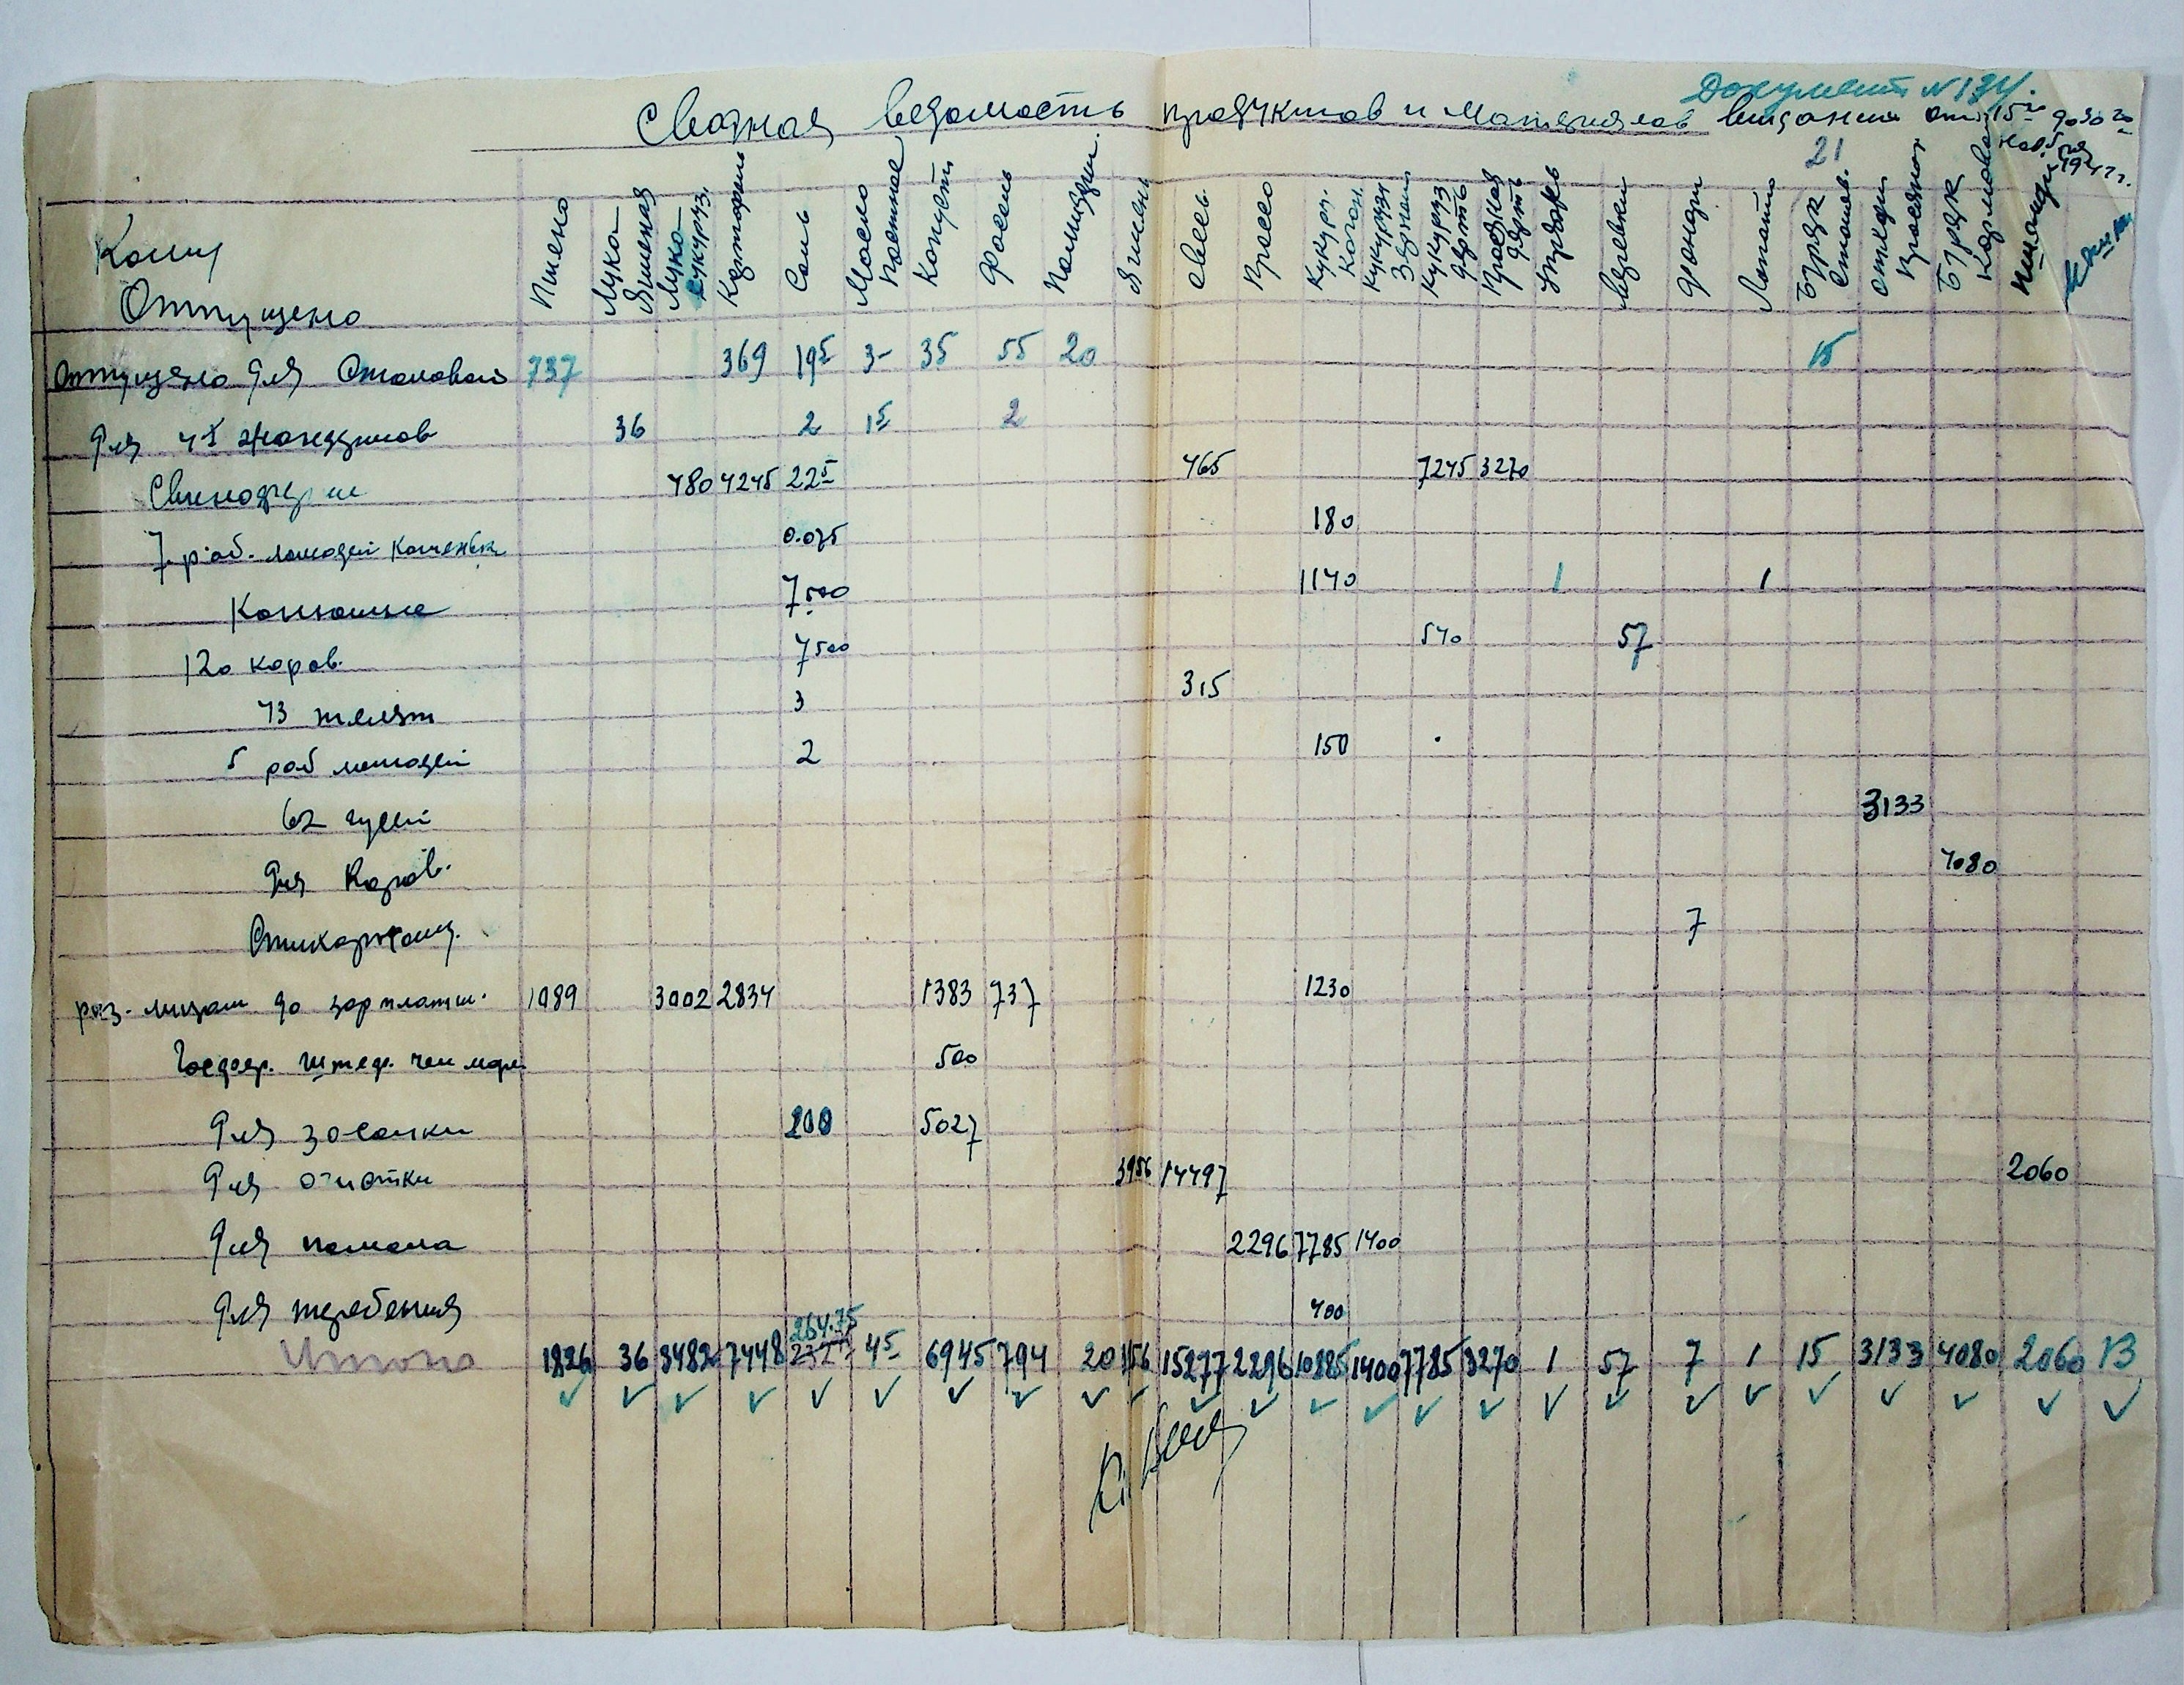 Документ №134.
Сводная ведомость продуктов и материалов видання от 15го до 30го
ноября
1941 г.
21
Кому
Отпущено
Пшено
Мука ячменная
Мука кукуруз.
Картофель
Соль
Масло постное
Капуста
Фасоль
Помидри.
Ячмень
Овесь
Просо
Кукуру. качан.
Кукуруз зерном
Кукуруз дерть
Просяная дерть
Упряжь
Веревки
Фонари
Лопати
Буряк столов.
отходи просяног
Буряк кормовой
Отпущено для столовой 737 369 19⁵ 3- 35 55 20 15
для 4х жандармов 36 2 1⁵ 2
Свиноферми 480 4245 22⁵ 465 7245 3270
7 раб. лошадей 0.075 180
Конюшне 7500 1140 1 1
120 коров. 7500 540 57
43 телят 3 315
5 раб лошадей 2 150
62 гусей 3133
для Коров. 4080
7
раз. лицам до зарплати. 1089 3002 2834 1383 737 1230
500
для засолки 200 5027
для очистки 3956 14497 2060
для помола 2296 7785 1400
для теребения 400
264.75
Итого 1826 36 3482 7448 232 4⁵ 6945 794 20 3956 15277 2296 10885 1400 7785 3270 1 57 7 1 15 3133 4080 2060 13